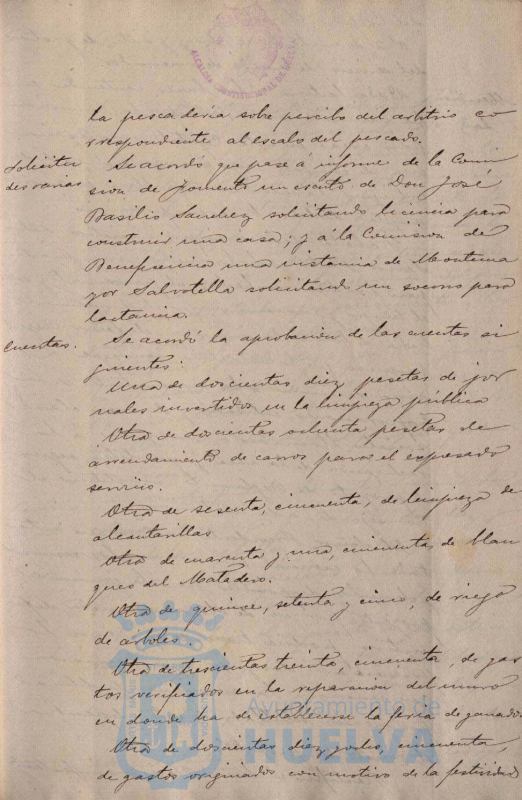 ALCALDIA CONSTITUCIONAL DE HUELVA
la pescaderia sobre percibo del arbitrio co
rrespondiente al escalo del pescado.
Solicitu
des varias
Se acordó que pase á informe de la Comi
sion de Fomento un escrito de Don José
Basilio Sanchez solicitando licencia para
construir una casa; y á la Comision de
Beneficencia una instancia de Montema
yor Salvatella solicitando un socorro para
lactancia.
Cuentas.
Se acordó la aprobacion de las cuentas si
guientes:
Una de doscientas diez pesetas de jor
nales invertidos en la limpieza publica
Otra de doscientas ochenta pesetas de
arrendamiento de carros para el expresado
servicio.
Otra de sesenta, cincuenta, de limpieza de
alcantarillas
Otra de cuarenta y una, cincuenta, de blan
queo del Matadero.
Otra de quince, setenta y cinco, de riego
de arboles.
Otra de trescientas treinta, cincuenta, de gas
tos verificados en la reparacion del muro
en donde ha de establecerse la feria de ganados
Otra de doscientas diez y ocho, cincuenta,
de gastos originados con motivo de la festividad
Ayuntamiento de
HUELVA